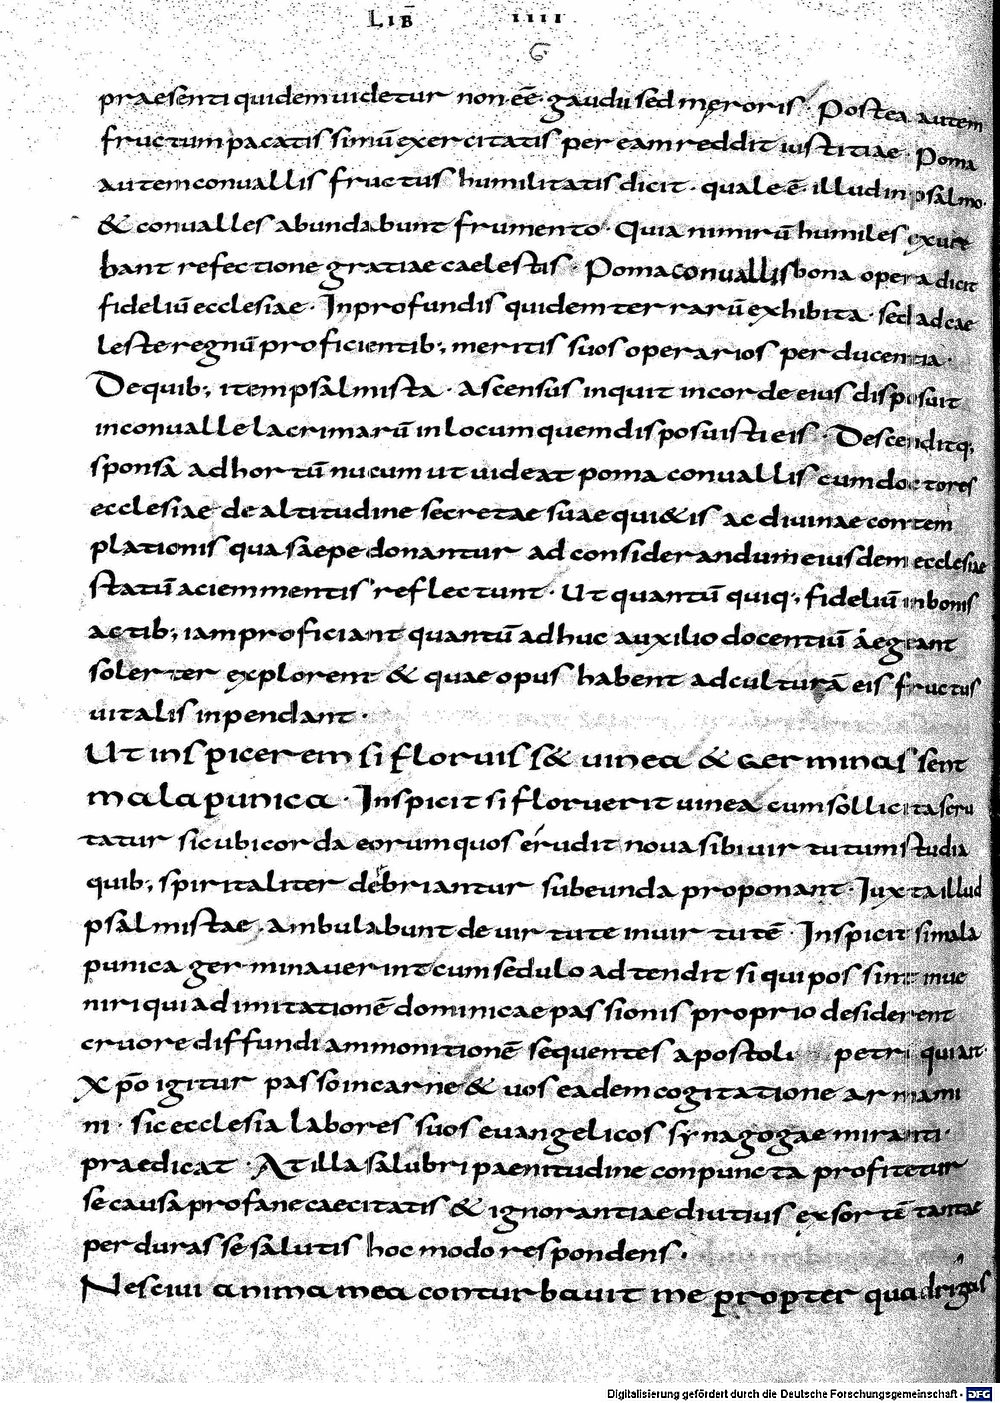 LIB̄ IIII
G
praesenti quidem videtur non ēē gaudii sed męroris · Postea autem
fructum pacatis simū exercitatis per eam reddit iustitiae · Poma
autem convallis fructus humilitatis dicit · quale ē illud in psalmo ·
& convalles abundabunt frumento · Quia nimirū humiles
bant refectione gratiae caelestis · Poma convallis bona opera dicit
fideliū ecclesiae · In profundis quidem terrarū exhibita · sed ad cae
leste regnū proficientib; meritis suos operarios perducentia ·
De quib; item psalmista · Ascensus inquit in corde eius disposuit
in convalle lacrimarū in locum quem disposuisti eis · Descenditq;
sponsa ad hortū nucum ut uideat poma convallis cum doctores
ecclesiae de altitudine secretae suae qui&is ac divinae contem
plationis qua saepe donantur ad considerandum eiusdem ecclesiae
statū aciem mentis reflectunt · Ut quantū quiq; fideliū in bonis
actib; iam proficiant quantū adhuc auxilio docentiū aegeant
solerter explorent & quae opus habent ad culturā eis fructus
uitalis inpendant ·
Ut inspicerem si floruiss& uinea & germinassent
mala punica · Inspicit si floruerit uinea cum sollicita scru
tatur sic ubi corda eorum quos erudit nova sibi uirtutum studia
quib; spiritaliter debriantur subeunda proponant · Iuxta illud
psalmistae · ambulabunt de uirtute in uirtutē · Inspicit si mala
punica germinauerint cum sedulo adtendit si qui possint inue
niri qui ad imitationē dominicae passionis proprio desiderent
cruore diffundi ammonitionē sequentes apostoli petri qui ait ·
Xp̄o igitur passo in carne & uos eadem cogitatione armami
ni · sic ecclesia labores suos euangelicos synagogae miranti ·
praedicat · At illa salubri paenitudine conpuncta profitetur
se causa profane caecitatis & ignorantiae diutius exsortē tantae
perduras se salutis hoc modo respondens ·
Nescivi anima mea conturbauit me propter quadrigas
Digitalisierung gefördert durch die Deutsche Forschungsgemeinschaft - DFG